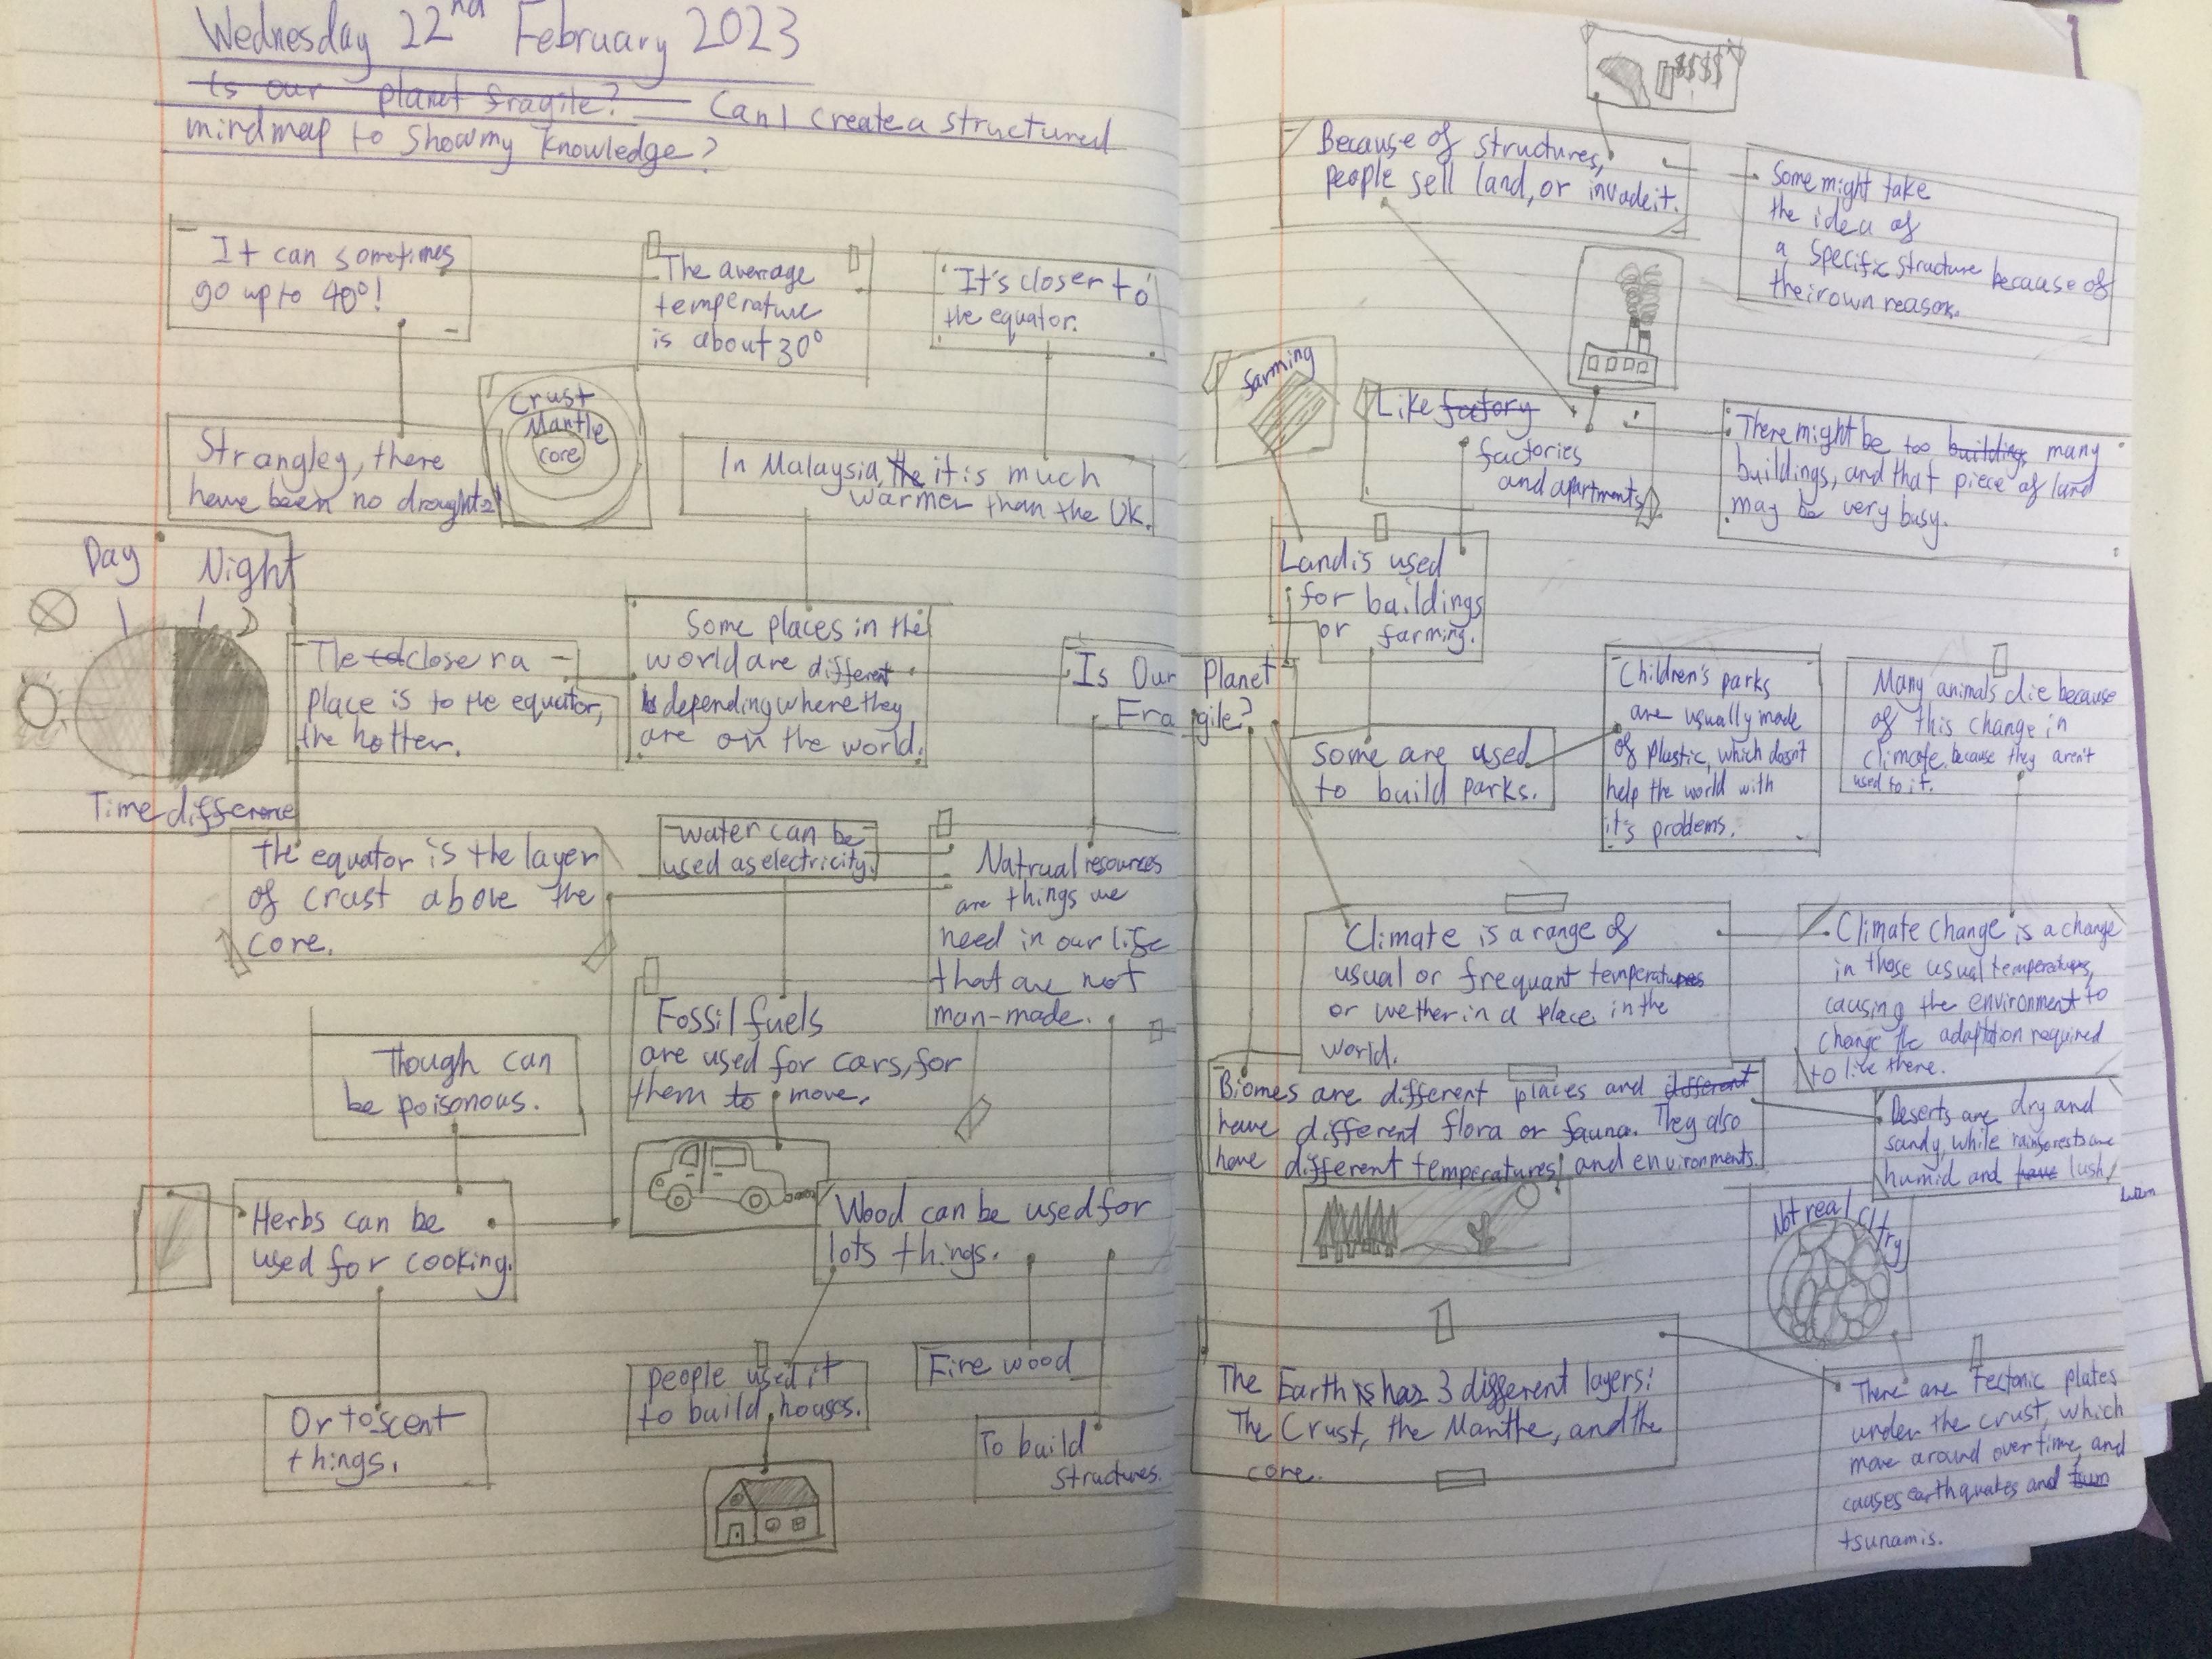 Wednesday 22nd February 2023
Is our planet fragile? Can I create a structured
mindmap to show my knowledge?
It can sometimes
go up to 40°!
The average
temperature
is about 30°
It's closer to
the equator.
Strangley, there
have been no droughts
Crust
Mantle
core
In Malaysia, the it is much
warmer than the UK.
Day Night
Time difference
The closer a
place is to the equator,
the hotter.
Some places in the
world are different
depending where they
are on the world.
Is Our Planet
Fragile?
The equator is the layer
of crust above the
core.
Water can be
used as electricity.
Natrual resources
are things we
need in our life
that are not
man-made.
Fossil fuels
are used for cars, for
them to move.
Though can
be poisonous.
Herbs can be
used for cooking.
Or to scent
things.
Wood can be used for
lots things.
people used it
to build houses.
Fire wood
To build
structures.
$$$$
Because of structures,
people sell land, or invade it.
Some might take
the idea of
a specific structure because of
their own reason.
farming
Like factory
factories
and apartments
There might be too buildings many
buildings, and that piece of land
may be very busy.
Land is used
for buildings
or farming.
Some are used
to build parks.
Children's parks
are usually made
of plastic, which doesn't
help the world with
it's problems.
Many animals die because
of this change in
climate, because they aren't
used to it.
Climate is a range of
usual or frequant temperatures
or wether in a place in the
world.
Climate change is a change
in those usual temperatures,
causing the environment to
change the adaptation required
to live there.
Biomes are different places and different
have different flora or fauna. They also
have different temperatures and environments.
Deserts are dry and
sandy, while rainforests are
humid and have lush
Not real
The Earth is has 3 different layers:
The Crust, the Manthe, and the
core.
There are tectonic plates
under the crust, which
move around over time, and
causes earthquakes and tsum
tsunamis.